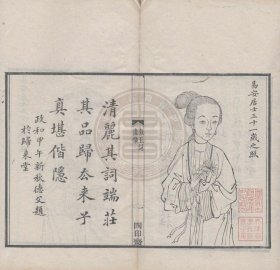 易安居士三十一歲之照
清麗其詞端莊
其品歸去來兮
真堪偕隱
政和甲午新秋德父題
於歸來堂
一
四印齋